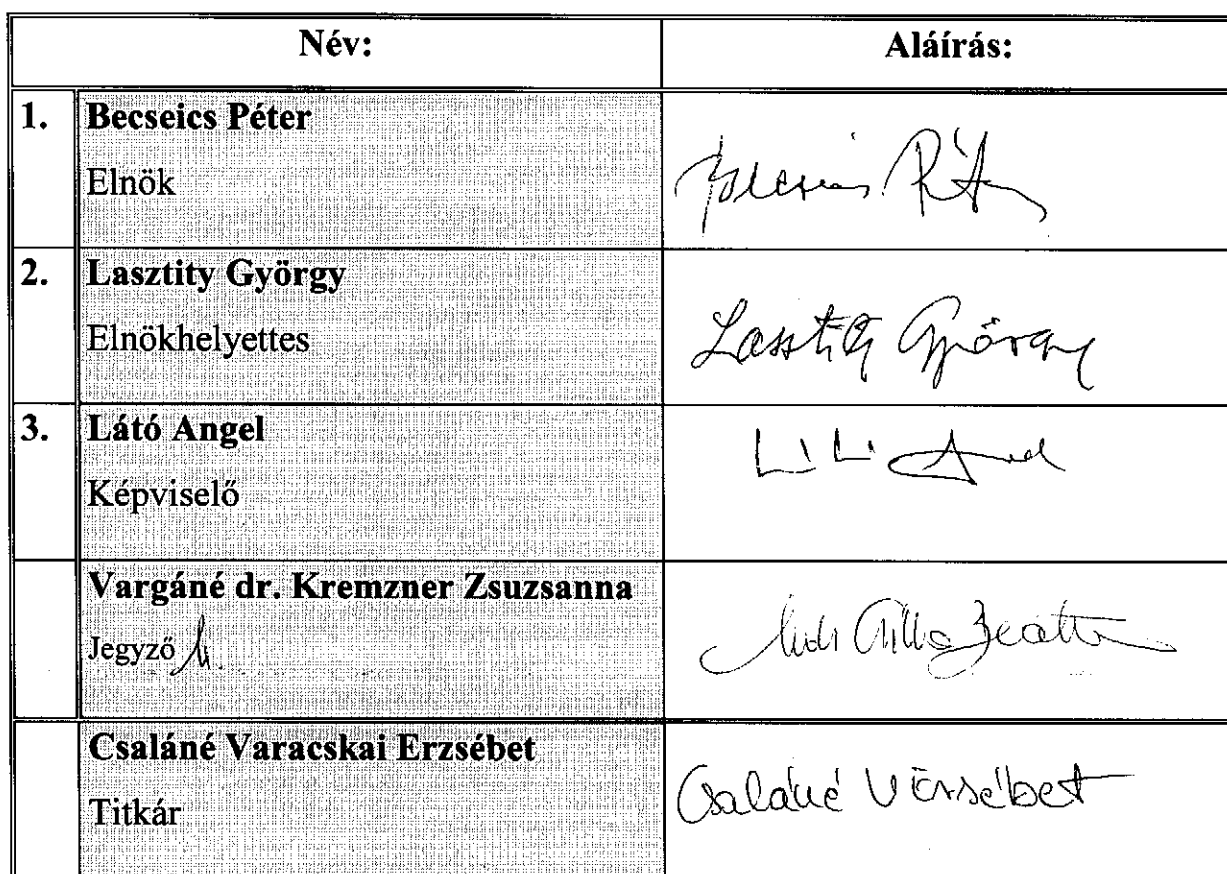 Név: Aláírás:
1. Becseics Péter
Elnök
Becseics Péter
2. Lasztity György
Elnökhelyettes
Lasztity György
3. Látó Angel
Képviselő
Vargáné dr. Kremzner Zsuzsanna
Jegyző
Csaláné Varacskai Erzsébet
Titkár
Csaláné V Erzsébet